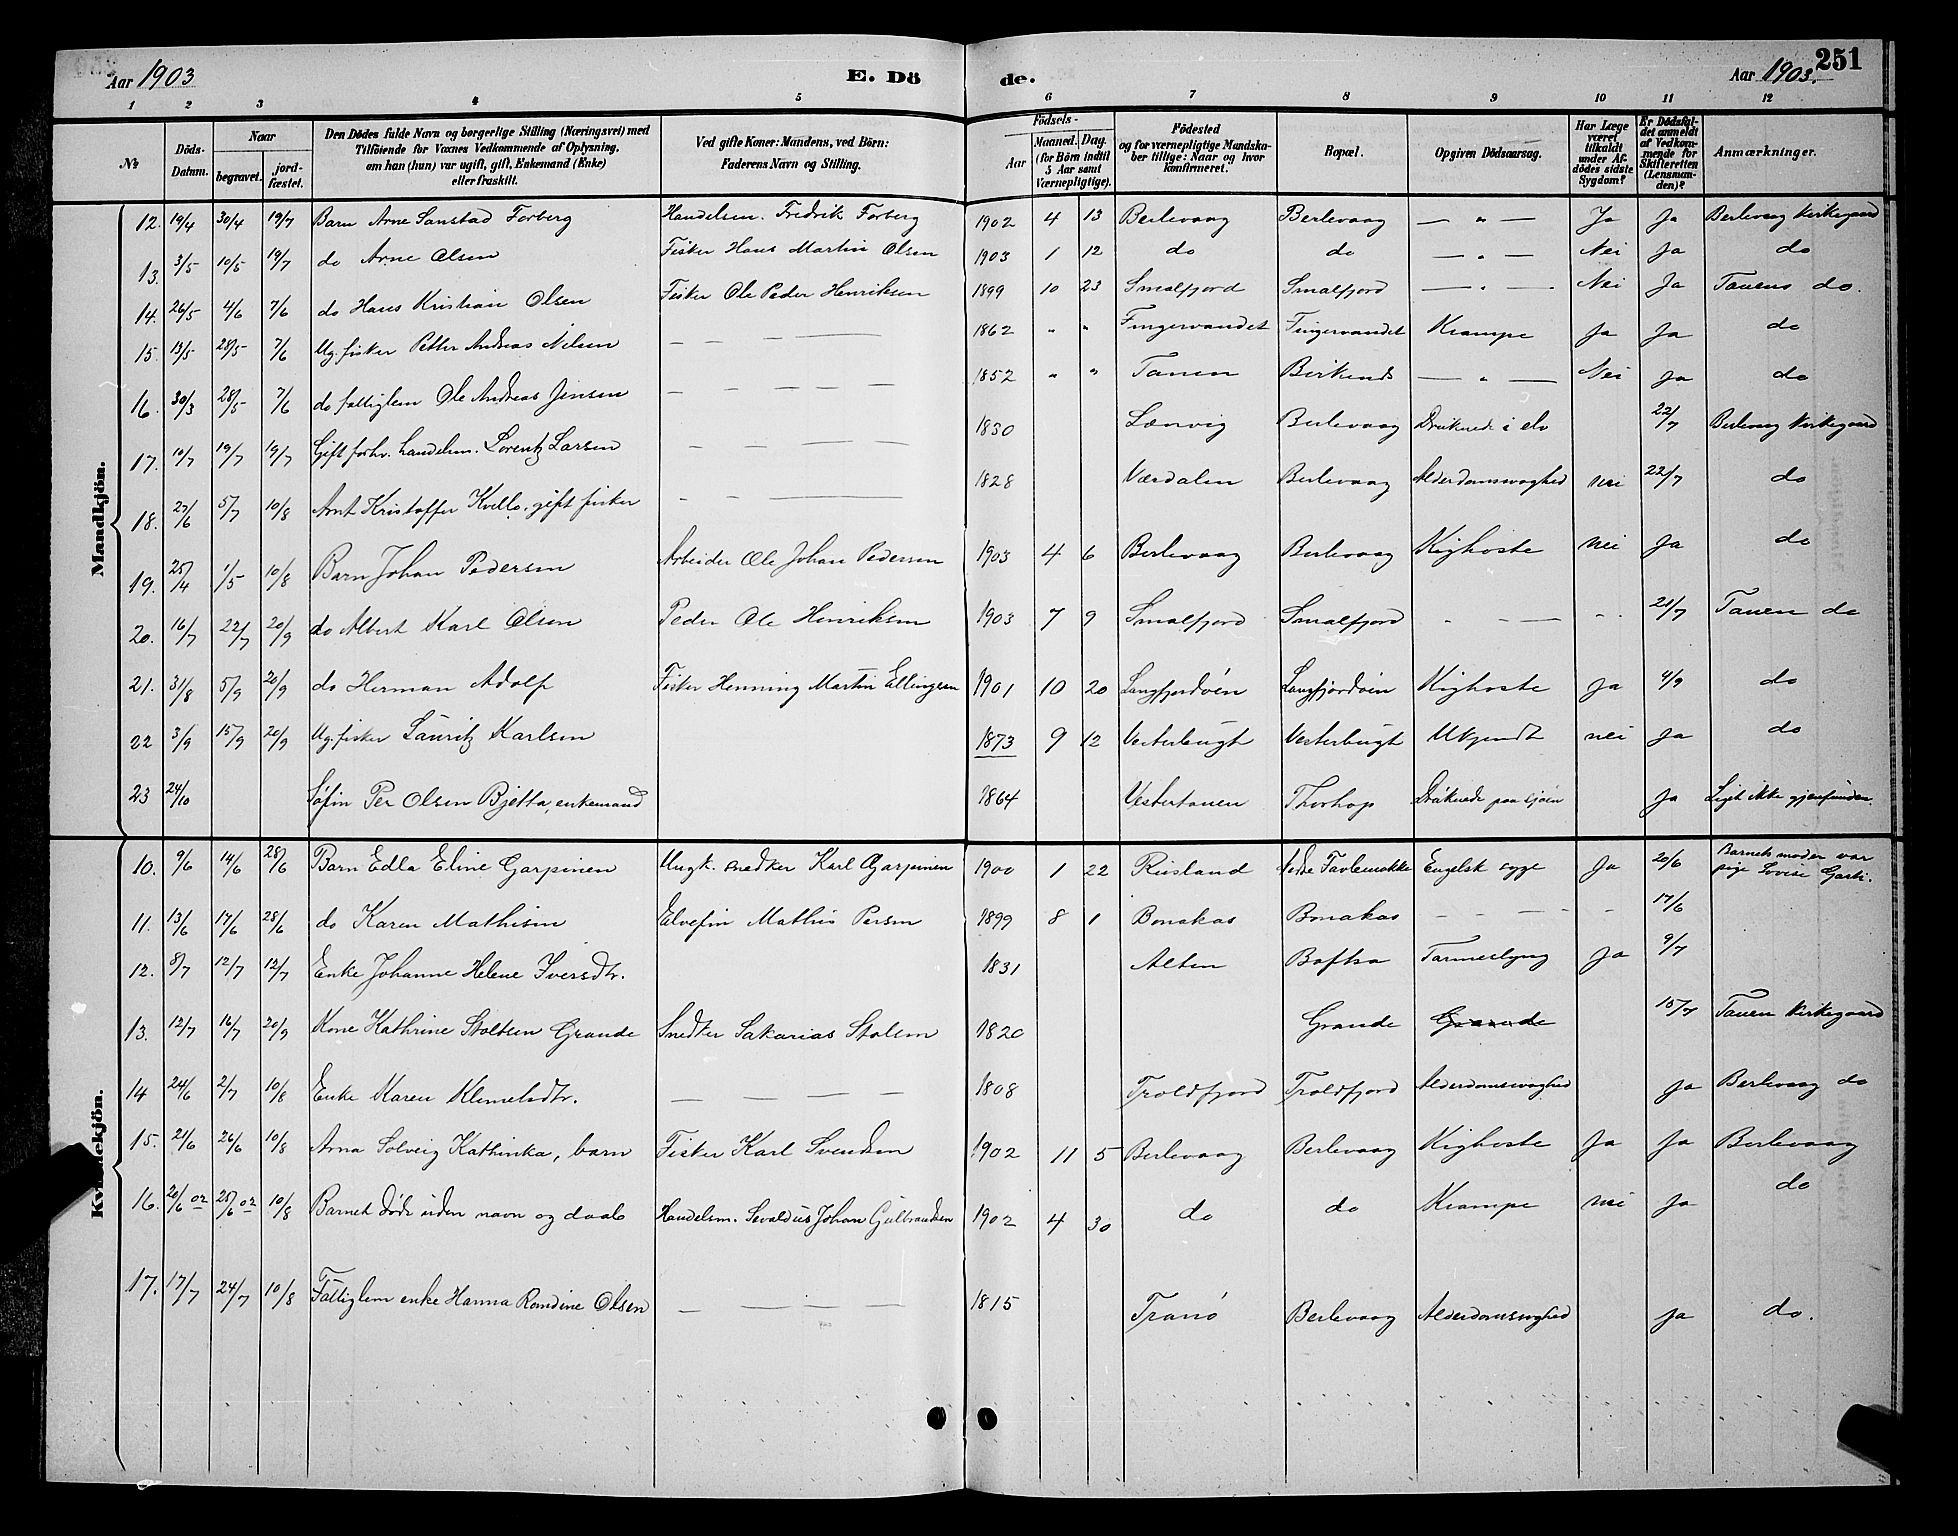 251
Aar 1903 E. Dö de. Aar 1903.
1 2 3 4 5 6 7 8 9 10 11 12
№ Döds-Datum. Naar begravet. jordfæstet. Den Dödes fulde Navn og borgerlige Stilling (Næringsvei) med Tilföiende for Voxnes Vedkommende af Oplysning, om han (hun) var ugift, gift, Enkemand (Enke) eller fraskilt. Ved gifte Koner: Mandens, ved Börn: Faderens Navn og Stilling. Födsels- Aar Maaned. Dag. (for Börn indtil 5 Aar samt Værnepligtige). Födested og for værnepligtige Mandskaber tillige: Naar og hvor konfirmeret. Bopæl. Opgiven Dödsaarsag. Har Læge været tilkaldt under Afdödes sidste Sygdom? Er Dödsfaldet anmeldt af Vedkommende for Skifteretten (Lensmanden)? Anmærkninger.
Mandkjön.
12. 19/4 30/4 19/7 Barn Arne Sanstad Forberg Handelsm. Fredrik Forberg 1902 4 13 Berlevaag Berlevaag — " — Ja Ja Berlevaag Kirkegaard
13. 3/5 10/5 19/7 do Arne Olsen Fisker Hans Martin Olsen 1903 1 12 do do — " — Nei Ja do
14. 26/5 4/6 7/6 do Hans Kristian Olsen Fisker Ole Peder Henriksen 1899 10 23 Smalfjord Smalfjord — " — Nei Ja Tanens do.
15. 13/5 28/5 7/6 Ug. fisker Petter Andreas Nilsen — — — — 1862 " " Fingervandet Fingervandet Krampe Ja Ja do
16. 30/3 28/5 7/6 do fattiglem Ole Andreas Jensen — — — — 1852 " " Tanen Birkends — " — Nei Ja do
17. 10/7 19/7 19/7 Gift forhv. handelsm. Lorentz Larsen — — — — 1830 Lænvig Berlevaag Druknede i elv 22/7 Berlevaag Kirkegaard
18. 27/6 5/7 10/8 Arnt Kristoffer Kvello, gift fisker — — — — 1828 Værdalen Berlevaag Alderdomsvaghed nei 22/7 do
19. 25/4 1/5 10/8 Barn Johan Pedersen Arbeider Ole Johan Pedersen 1903 4 6 Berlevaag Berlevaag Kighoste nei Ja do
20. 16/7 22/7 20/9 do Albert Karl Olsen Peder Ole Henriksen 1903 7 9 Smalfjord Smalfjord - - — - - 21/7 Tanen do
21. 31/8 5/9 20/9 do Herman Adolf Fisker Henning Martin Ellingsen 1901 10 20 Langfjordvén Langfjordvén Kighoste Ja 4/9 do
22 3/9 15/9 20/9 Ug. fisker Lauritz Karlsen 1873 9 12 Vesterbugt Vesterbugt Ukjendt nei Ja do
23 24/10 Søfin Per Olsen Bjetta, enkemand 1864 Vestertanen Thorhop Druknede paa sjøen Ja Liget ikke gjenfunden.
Kvindekjön.
10. 9/6 14/6 28/6 Barn Edla Eline Garpinen Ungk. snedker Karl Garpinen 1900 1 22 Rusland Nedre Engelsk syge Ja 20/6 Barnets moder var pige Lovise
11. 13/6 17/6 28/6 do Karen Mathisen Elvefin Mathis Persen 1899 8 1 Bonakas Bonakas - - - - - 17/6
12. 8/7 12/7 12/7 Enke Johanne Helene Iversdtr. 1831 Alten Boftsa Tarmeslyng Ja 9/7
13. 12/7 16/7 20/9 Kone Kathrine Stoltsen Grande Snedker Sakarias Stolsen 1820 Grande Grande 15/7 Tanen Kirkegaard
14 24/6 2/7 10/8 Enke Karen Klemetsdtr. — — — — 1808 Troldfjord Troldfjord Alderdomsvaghed Ja Berlevaag do
15. 21/6 26/6 10/8 Anna Solveig Kathinka, barn Fisker Karl Svendsen 1902 11 5 Berlevaag Berlevaag Kighoste Ja Ja Berlevaag
16. 20/6 02 25/6 02 10/8 Barnet døde uden navn og daab Handelsm. Sevaldus Johan Gulbrandsen 1902 4 30 do do Krampe nei Ja do
17. 17/7 24/7 10/8 Fattiglem enke Hanna Romdine Olsen — — — — 1815 Tranø Berlevaag Alderdomsvaghed Ja do.